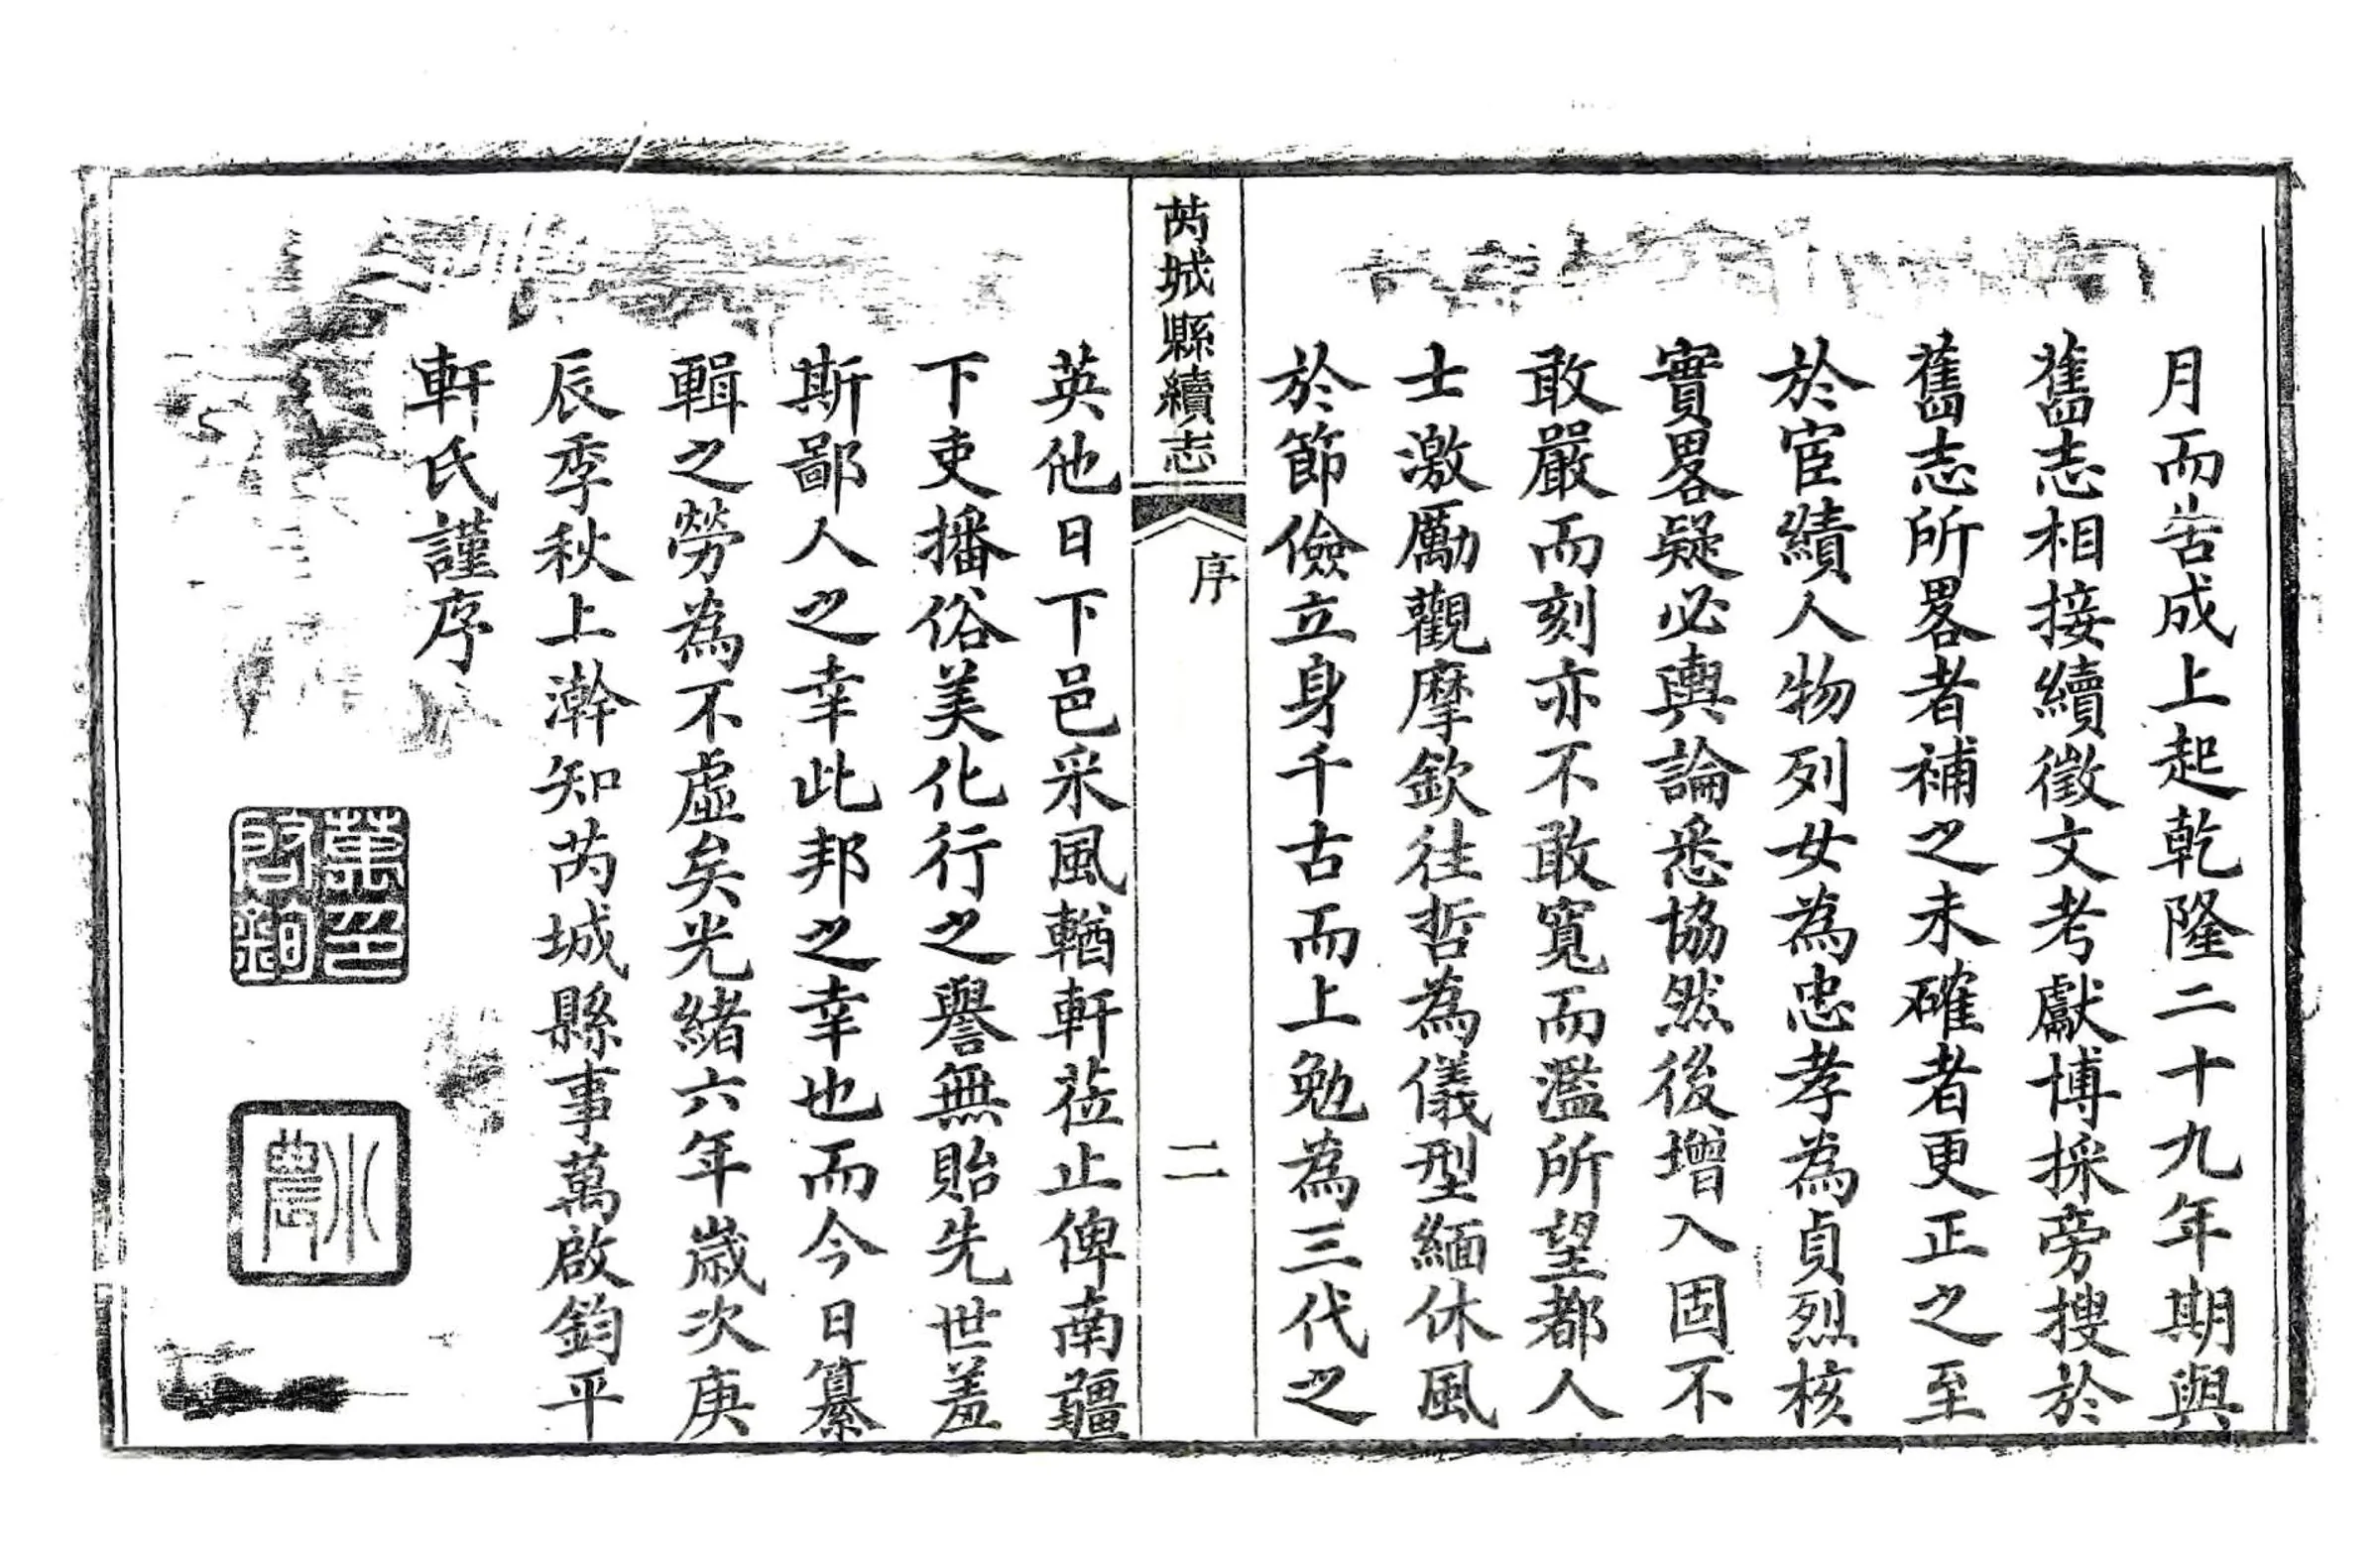 月而告成上起乾隆二十九年期與
舊志相接續徵文考獻博採旁搜於
舊志所畧者補之未確者更正之至
於宦績人物列女為忠孝為貞烈核
實畧疑必輿論悉協然後增入固不
敢嚴而刻亦不敢寬而濫所望都人
士激厲觀摩欽往哲為儀型緬休風
於節儉立身千古而上勉為三代之
芮城縣續志
序
二
英他日下邑采風輶軒蒞止俾南疆
下吏播俗美化行之譽無貽先世羞
斯鄙人之幸此邦之幸也而今日纂
輯之勞為不虛矣光緒六年歲次庚
辰季秋上澣知芮城縣事萬啟鈞平
軒氏謹序
萬啟鈞印
冰農